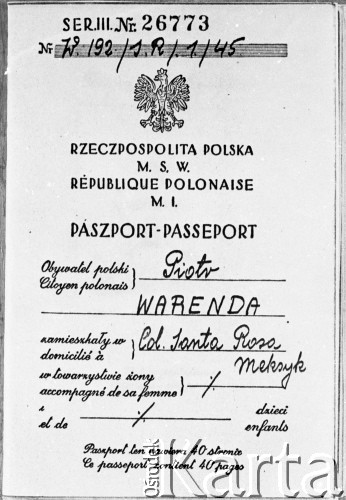 SER.III.Nr. 26773
Nr W. 192/S.R/1/45.
RZECZPOSPOLITA POLSKA
M. S. W.
RÉPUBLIQUE POLONAISE
M. I.
PASZPORT-PASSEPORT
Obywatel polski
Citoyen polonais } Piotr
WARENDA
zamieszkały w
domicilié à } Col. Santa Rosa
Meksyk
w towarzystwie żony
accompagné de sa femme } ·/·
z ·/· dzieci
et de enfants
Paszport ten zawiera 40 stronic
Ce passeport contient 40 pages
Ośrodek
Karta